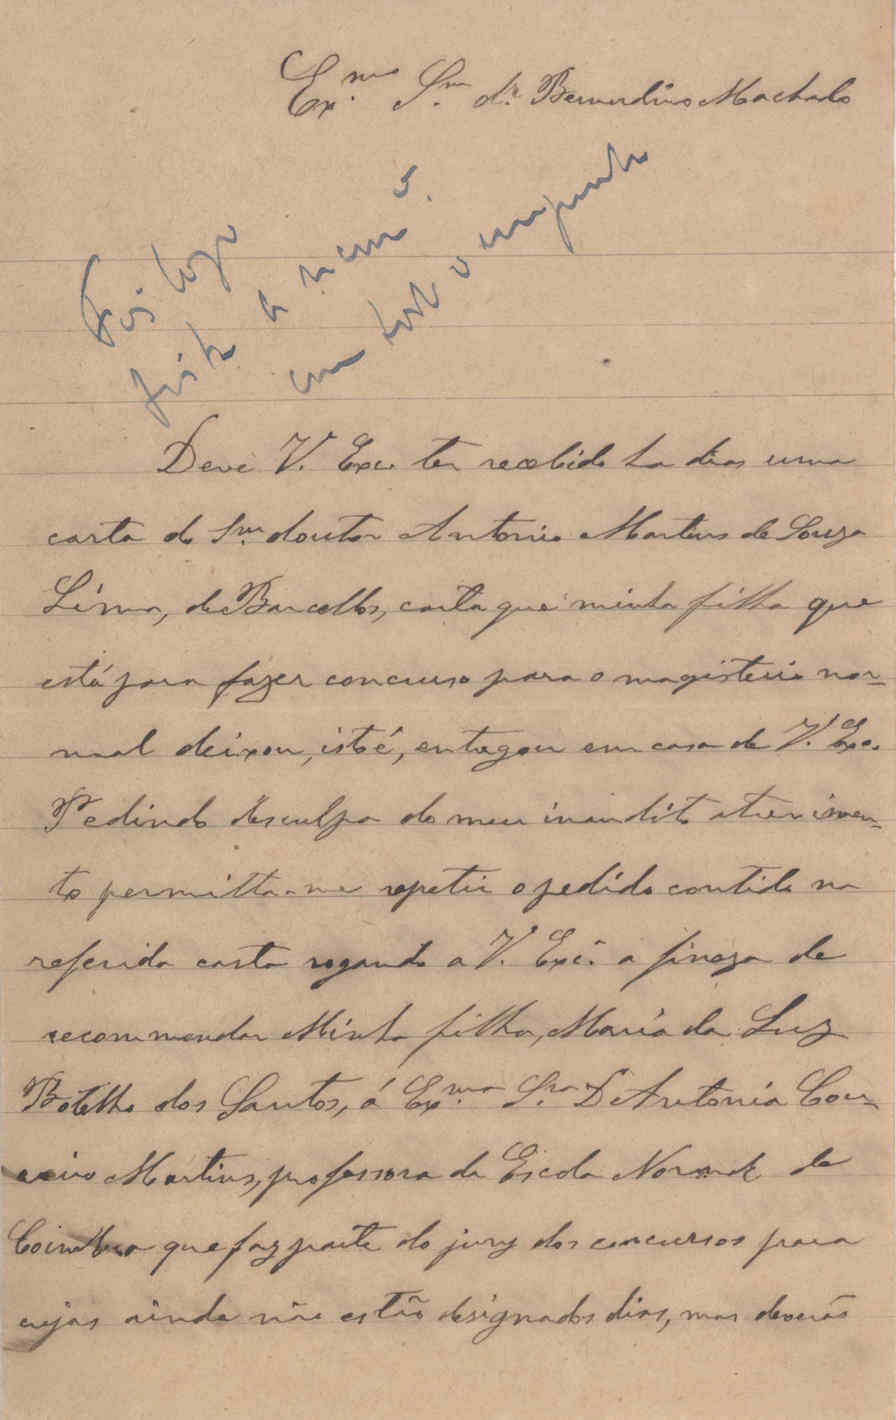 Ex.mo Sr. dr. Bernardino Machado
Deve V. Exc. ter recebido ha dias uma
carta do Snr. doutor Antonio Martins de Souza
Lima, de Barcellos, carta que minha filha que
está para fazer concurso para o magisterio nor-
mal deixou, isto é, entregou em casa de V. Exc.
Pedindo desculpa do meu inaudito atrevimen-
to permitta-me repetir o pedido contido na
referida carta rogando a V. Exc.ª a fineza de
recommendar Minha filha, Maria da Luz
Botelho dos Santos, á Ex.ma Sra D. Antonia
Martins, professora da Escola Normal de
Coimbra que faz parte do jury dos concursos para
cujas ainda não estão designados dias, mas deverão